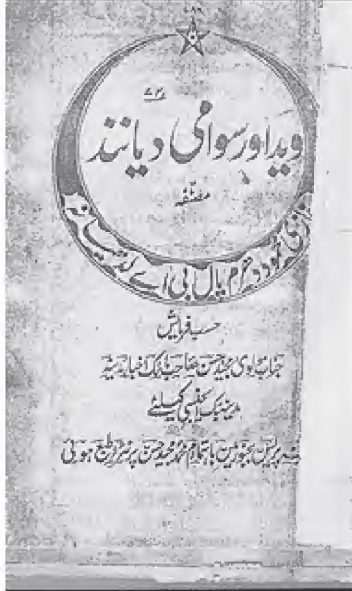 ۷۸۶
وید اور سوامی دیانند
مصنفہ
غازی محمود دھرم پال بی اے لدھیانہ
حسب فرمایش
جناب مولوی مجید حسن صاحب مالک اخبار مدینہ
مدینہ بک ایجنسی کیلئے
مدینہ پریس بجنور میں باہتمام محمد مجید حسن پرنٹر طبع ہوئی